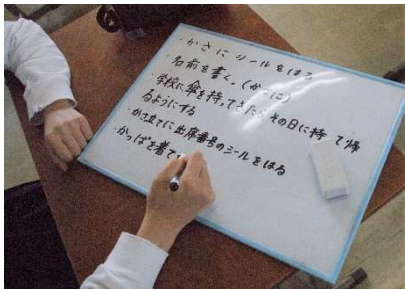 ・かさにシールをはる
・名前を書く。(かさに)
・学校に傘を持ってきたらその日に持って帰
るようにする
・かさ立てに出席番号のシールをはる
・かっぱを着て